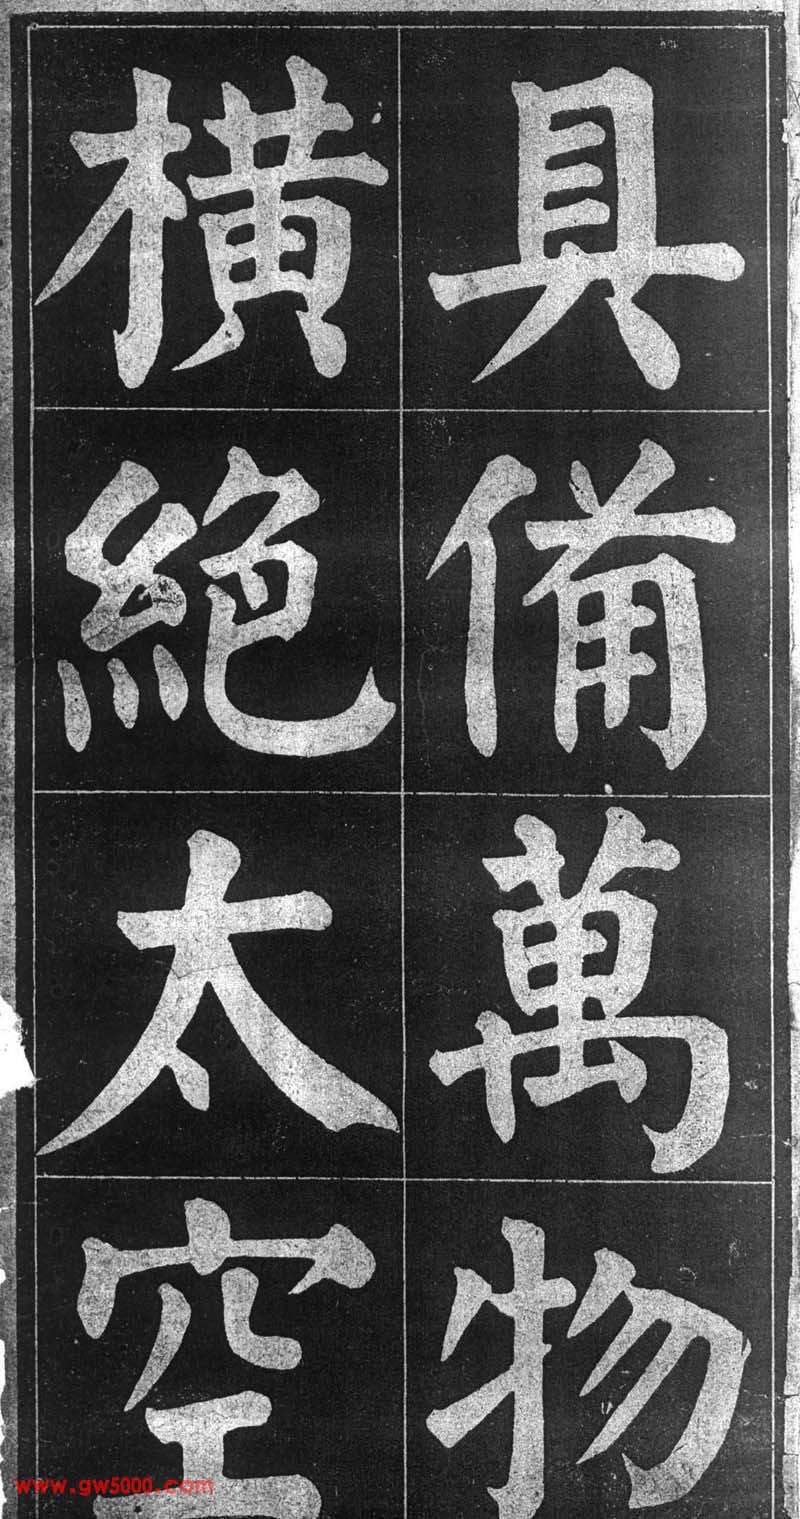 具備萬物
橫絕太空
www.gw5000.com